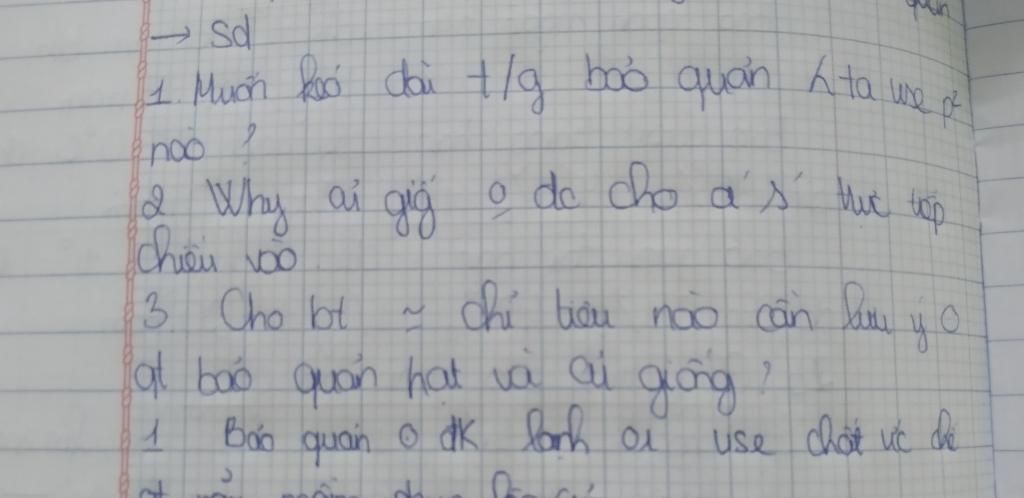 → sd
1. Muốn kéo dài t/g bảo quản h ta use p²
nào ?
2 Why củ giố o dc cho a' s' trực tiếp
chiếu vào
3 Cho bt ~ chỉ tiêu nào cần lưu ý o
qt bảo quản hạt và củ giống ?
1 Bảo quản o đk lạnh or use chất ức chế